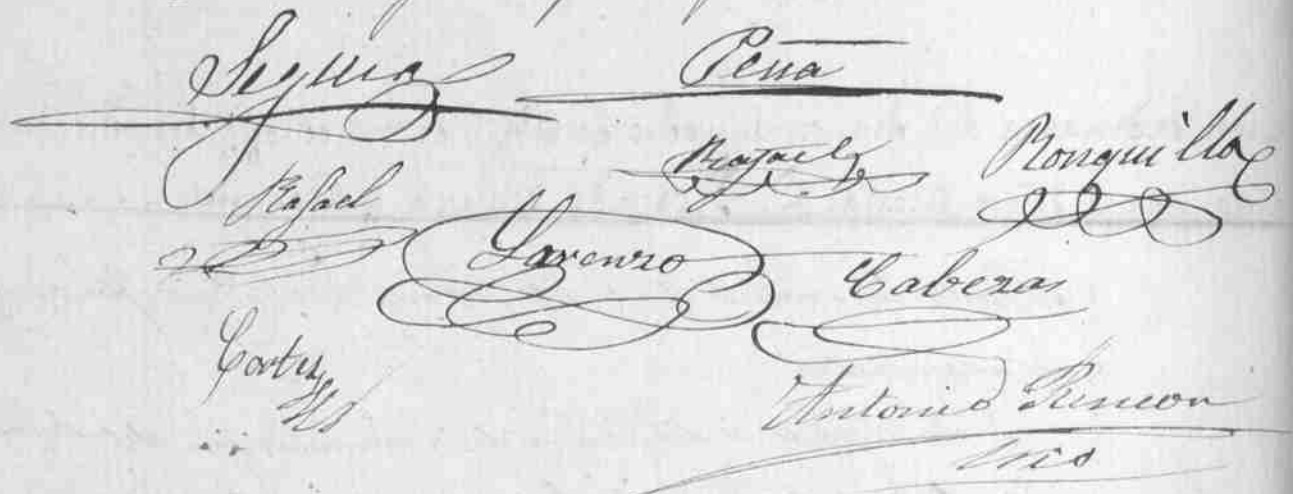 Segura Peña
Rafael Rafael Ronquillo
Lorenzo Cabezas
Cortes
Antonio Rincon